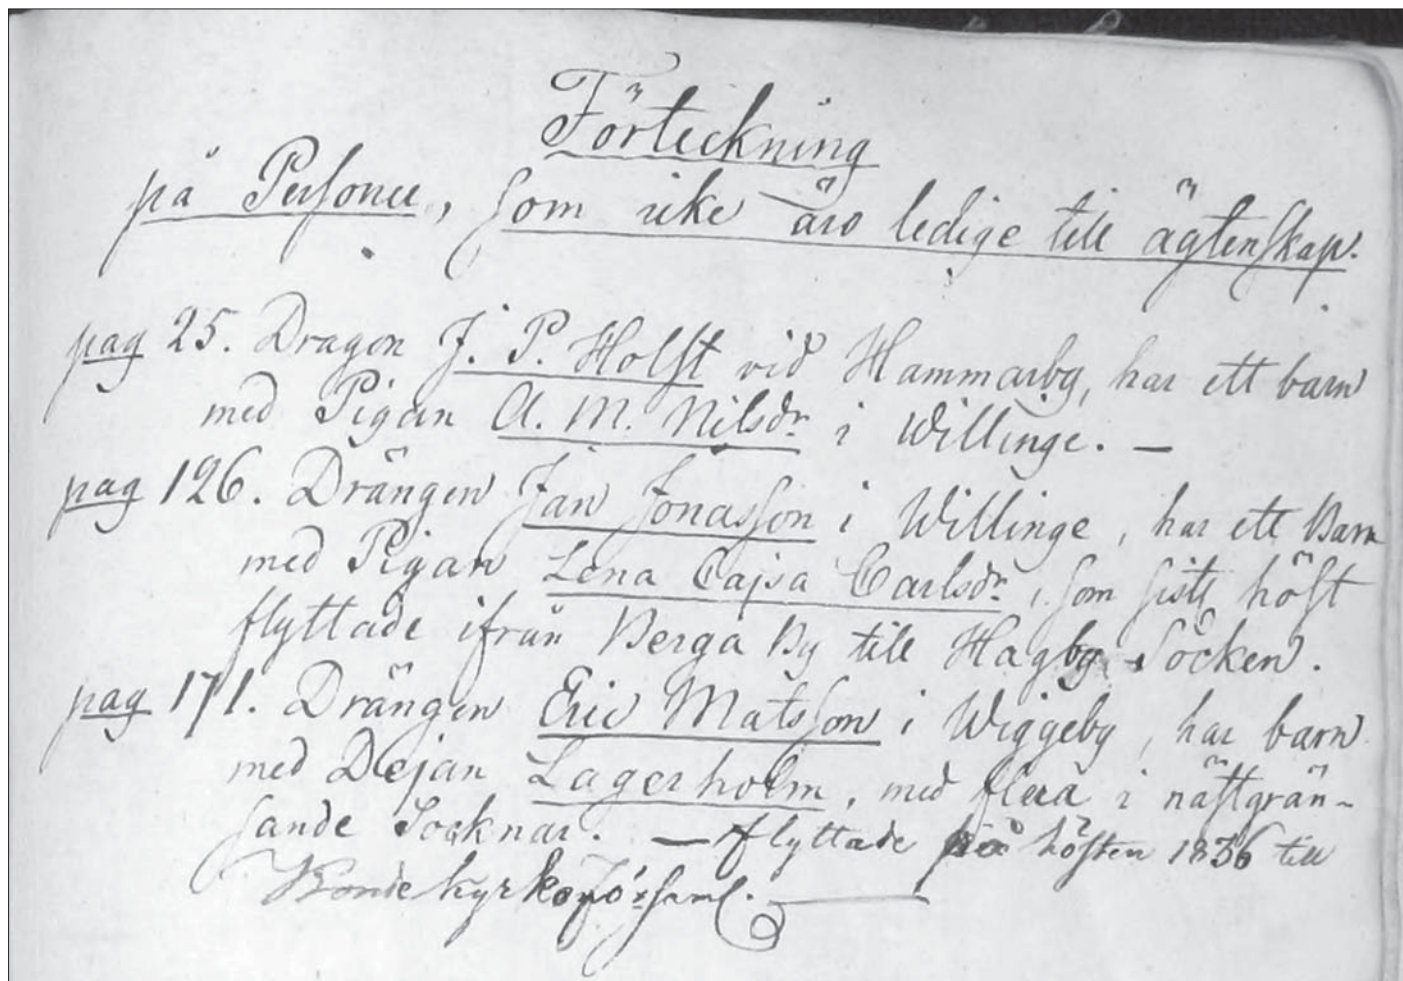 Förteckning
på Personer, som icke äro ledige till ägtenskap.
pag 25. Dragon J. P. Holst vid Hammarby, har ett barn
med Pigan A. M. Nilsdr i Willinge. —
pag 126. Drängen Jan Jonasson i Willinge, har ett Barn
med Pigan Lena Cajsa Carlsdr, som sistl höst
flyttade ifrån Berga By till Hagby Socken.
pag 171. Drängen Eric Matsson i Wiggeby, har barn
med Dejan Lagerholm, med flera i nästgrän-
sande Socknar. — flyttade på hösten 1836 till
Bondekyrkoförsaml. —